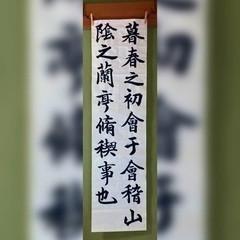 暮春之初會于會稽山
陰之蘭亭脩稧事也